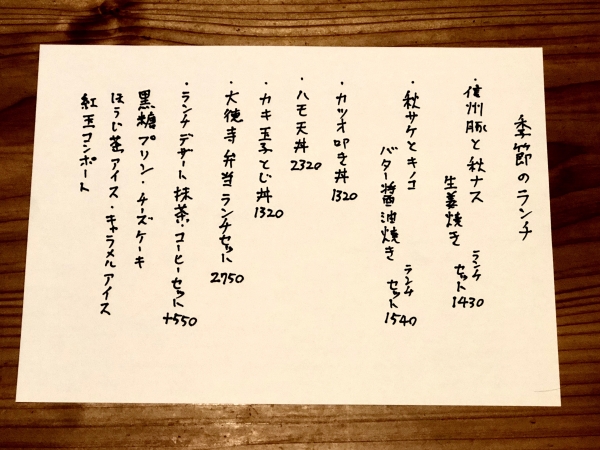 季節のランチ
・信州豚と秋ナス
生姜焼き
ランチ
セット
1430
・秋サケとキノコ
バター醤油焼き
ランチ
セット
1540
・カツオ叩き丼
1320
・ハモ天丼
2320
・カキ玉子とじ丼
1320
・大徳寺弁当ランチセット
2750
・ランチデザート抹茶・コーヒーセット
+550
黒糖プリン・チーズケーキ
ほうじ茶アイス・キャラメルアイス
紅玉コンポート